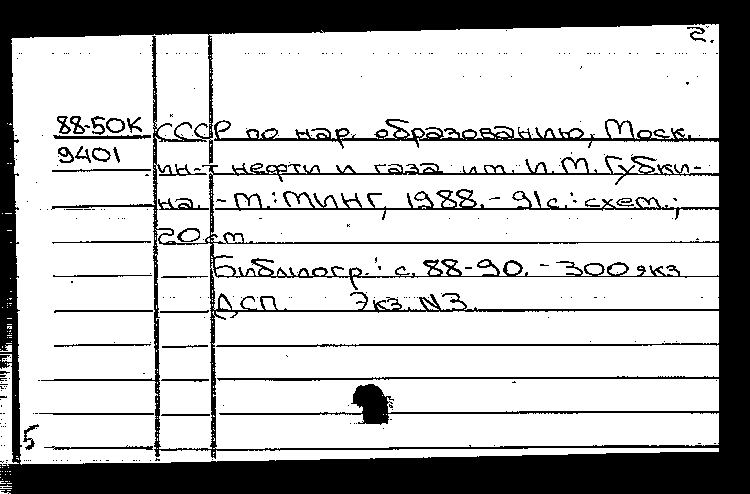 2.
88-50К СССР по нар. образованию, Моск.
9401 ин-т нефти и газа им. И.М. Губки-
на. - М.: МИНГ, 1988. - 91с.: схем.;
20 см.
Библиогр.: с. 88-90. - 300 экз
ДСП. Экз. N.3.
5